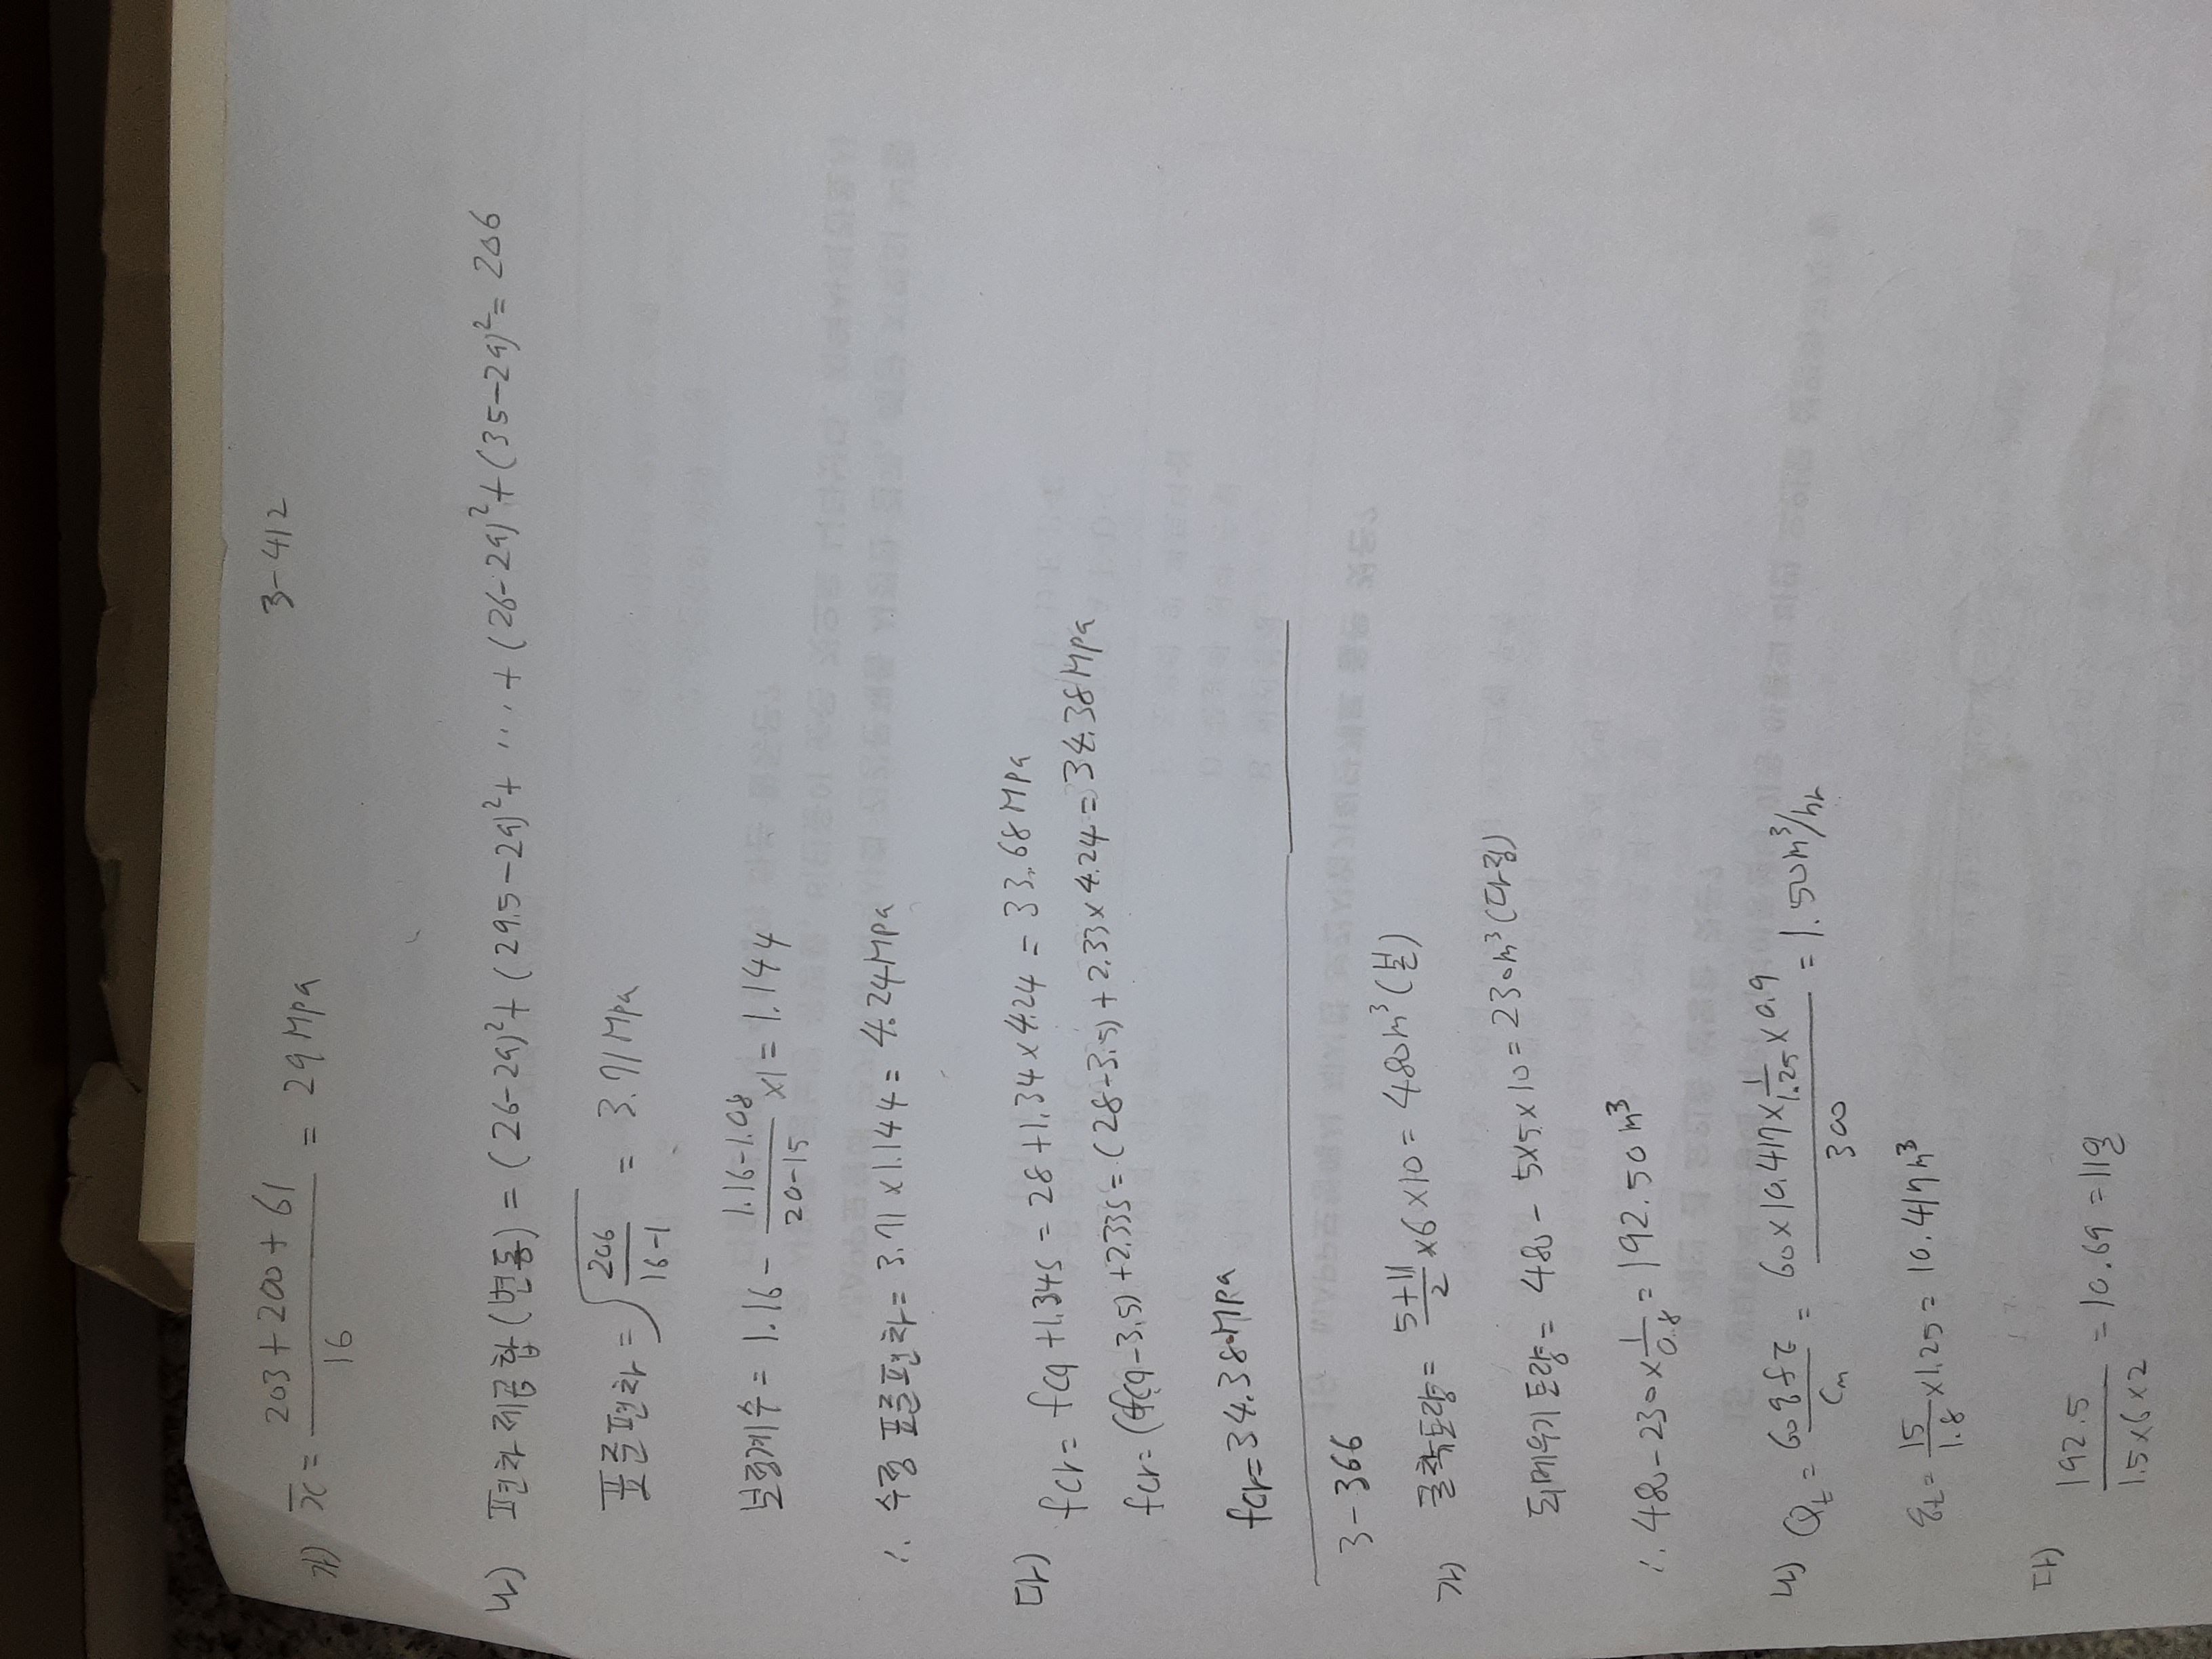 3-412
가) x̄ = (203+200+61)/16 = 29MPa
나) 편차제곱합(변동) = (26-29)²+(29.5-29)²+ ... +(26-29)²+(35-29)² = 206
표준편차 = √(206/(16-1)) = 3.71MPa
보정계수 = 1.16 - (1.16-1.08)/(20-15) ×1 = 1.144
∴ 수정 표준편차 = 3.71×1.144 = 4.24MPa
다) fcr = fcq +1.34S = 28+1.34×4.24 = 33.68MPa
fcr = (fcq-3.5)+2.33S = (28-3.5)+2.33×4.24 = 34.38MPa
fcr = 34.38MPa
3-366
가) 굴착토량 = (5+11)/2 ×6×10 = 480m³(본)
되메우기토량 = 480 - 5×5×10 = 230m³(다짐)
∴ 480-230×1/0.8 = 192.50m³
나) Qt = 60qfE/Cm = (60×10.417×1/1.25×0.9)/300 = 1.50m³/hr
qt = 15/1.8 ×1.25 = 10.417m³
다) 192.5/(1.5×6×2) = 10.69 = 11일